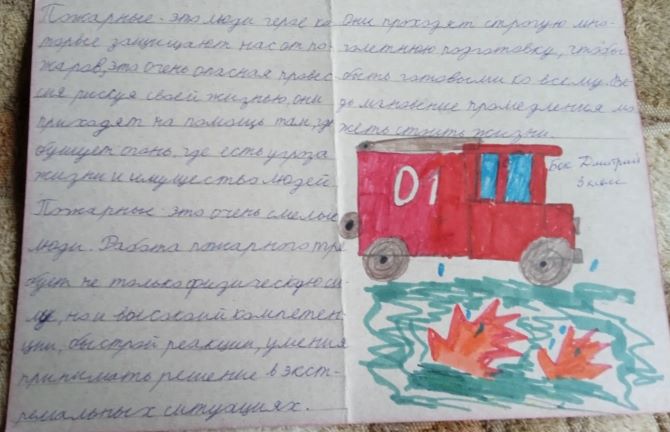 Пожарные - это люди герои ко-
торые защищают нас от по-
жаров, это очень опасная профес-
сия рискуя своей жизнью, они
приходят на помощь там, где
бушует огонь, где есть угроза
жизни и имущества людей.
Пожарные - это очень смелые
люди. Работа пожарного тре
бует не только физическую си-
лу, но и высокой компетен-
ции, быстрой реакции, умения
принимать решение в экст-
ремальных ситуациях.
Они проходят строгую мно-
голетнюю подготовку, чтобы
быть готовыми ко всему. Ве
дь мгновение промедления мо
жеть стоить жизни.
Бок Дмитрий
3 класс
01